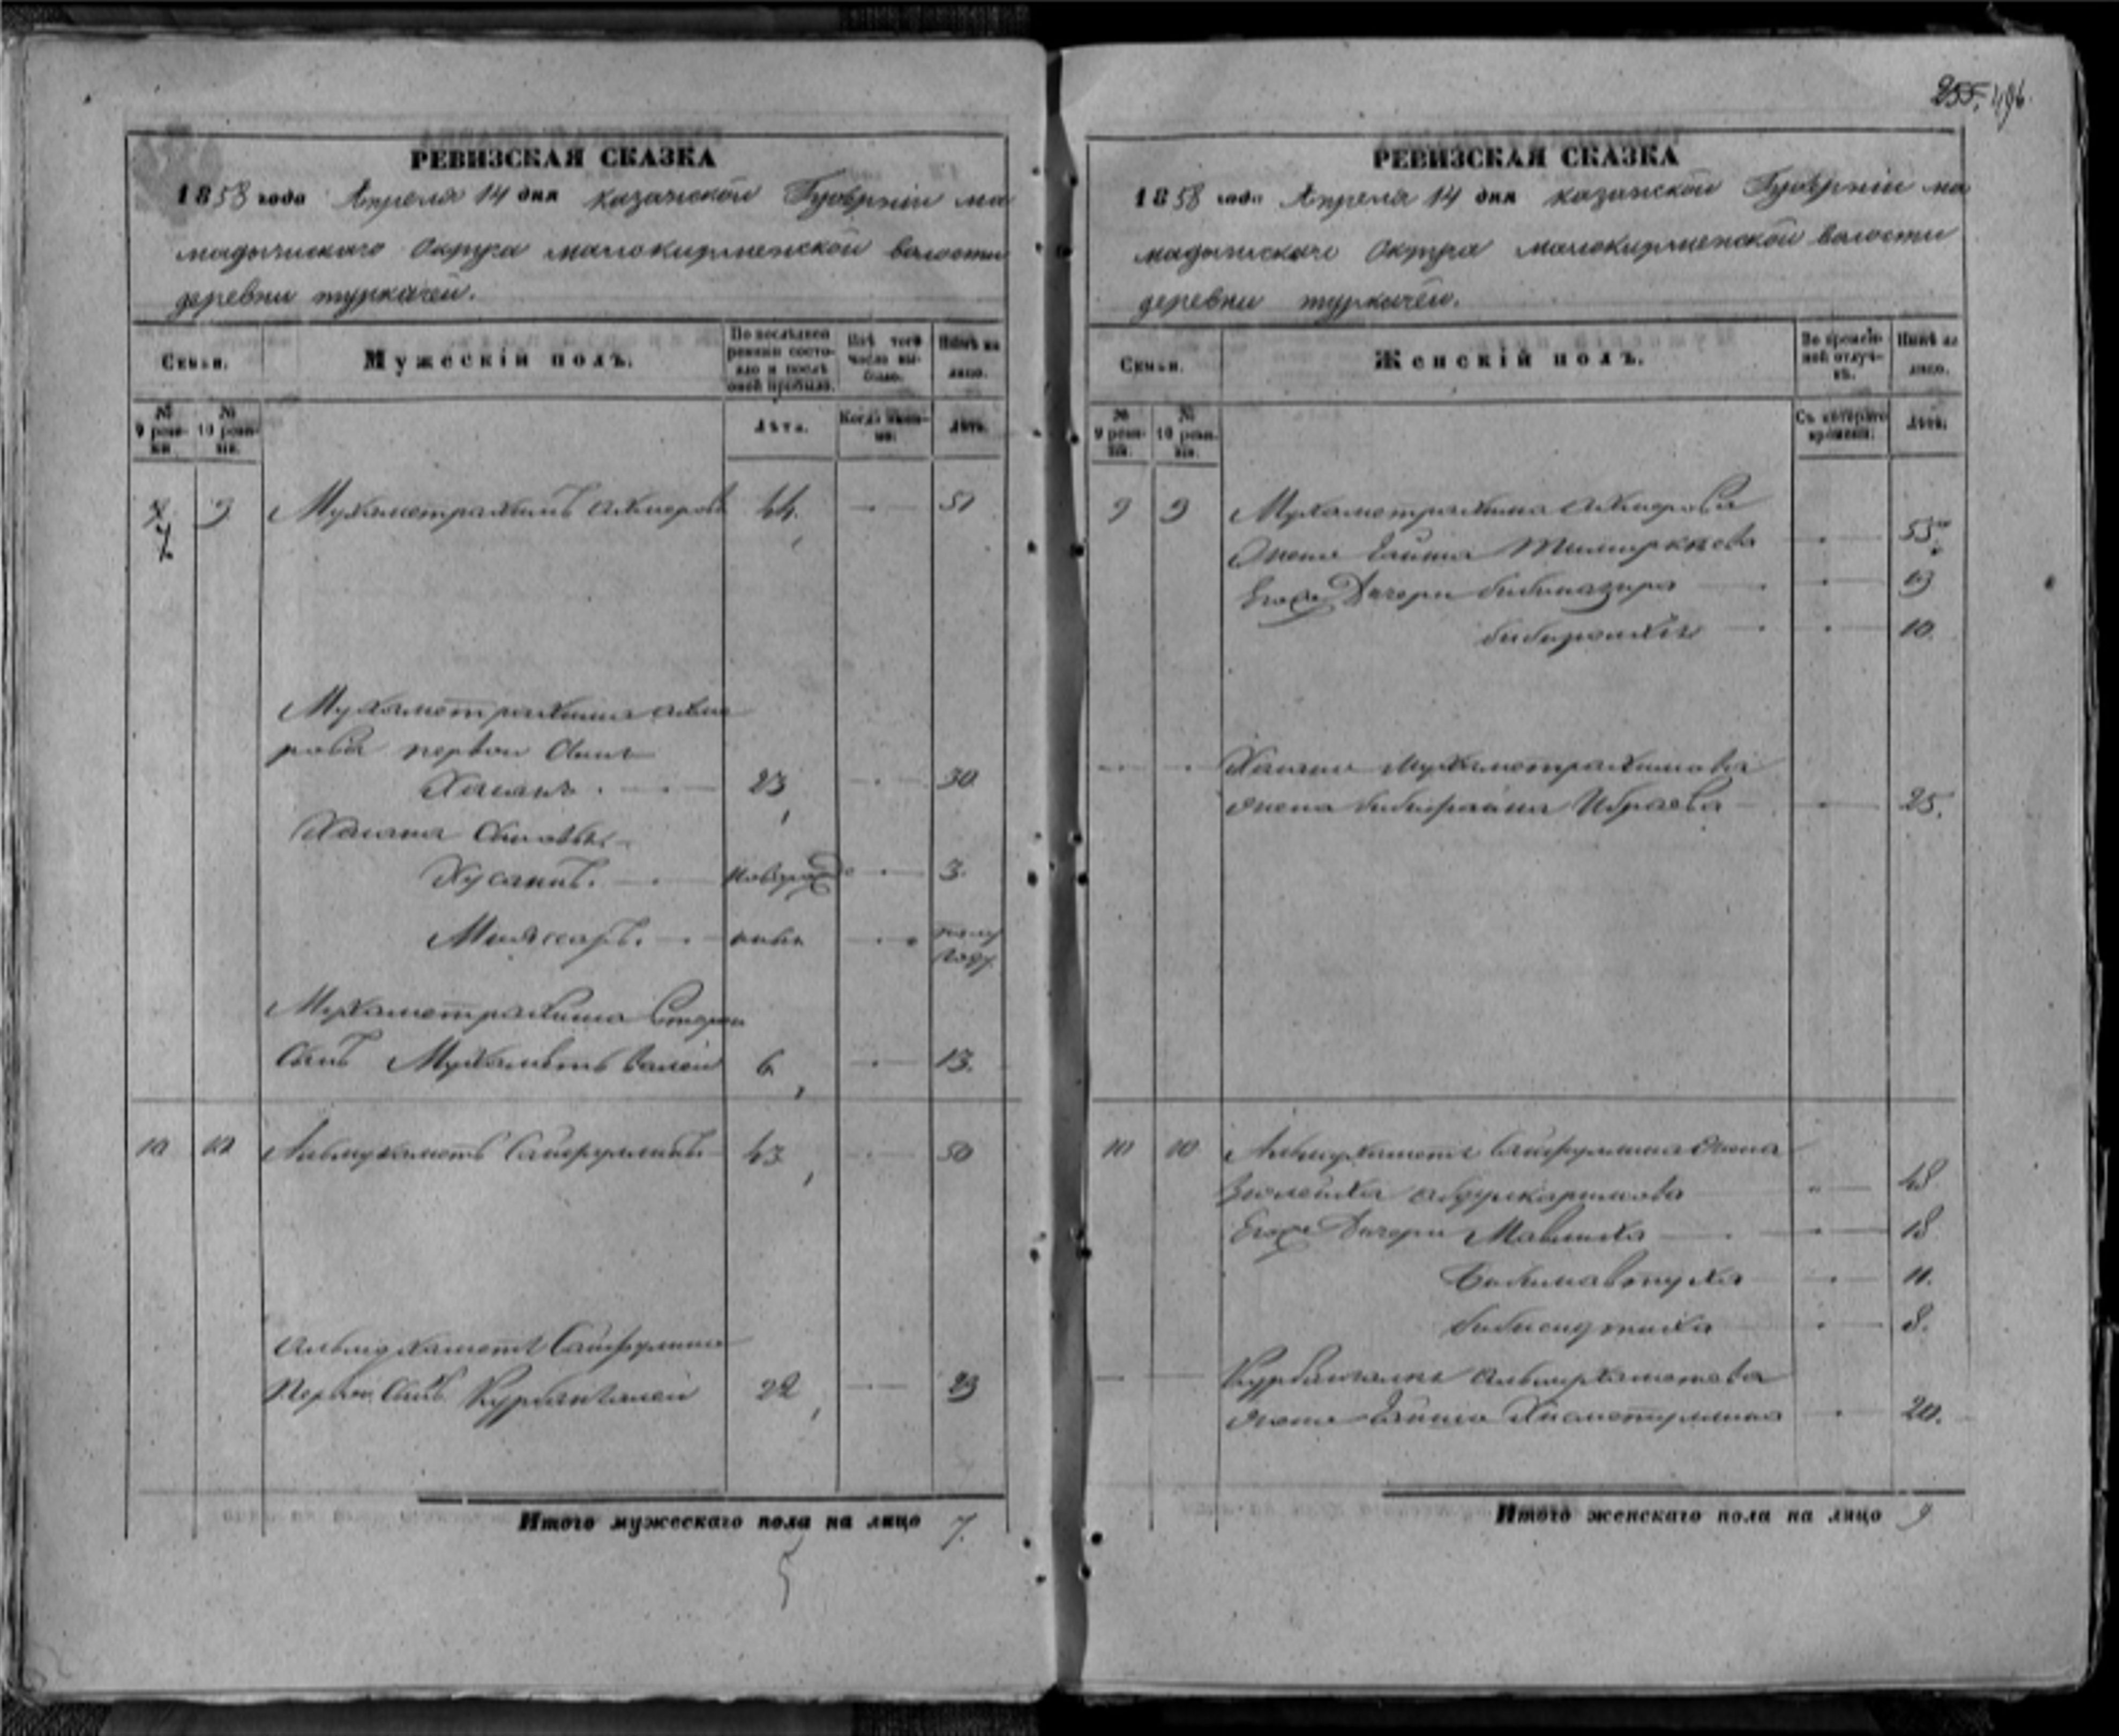 РЕВИЗСКАЯ СКАЗКА
1858 года Апреля 14 дня казанской Губернiи ма
мадышскаго Округа малокирменской волости
деревни туркачей.
Семьи.
Мужескiй полъ.
По последней ревизiи состояло и после оной прибыло.
Изъ того числа выбыло.
Ныне на лицо.
№ 9 ревизiи
№ 10 ревизiи.
Лета.
Когда именно.
Лета.
9 Мухаметрахимъ Ахмеровъ 44. 51
7
Мухаметрахима Ахме
рова первой Сынъ
Хасанъ. 23 30
Хасана Сыновья
Хусаинъ. новорож 3.
Миассаръ. полу
году
Мухаметрахима второй
Сынъ Мухаметь Валей 6 13.
10 10 Альмухаметь Сайфуллинъ 43 50
Альмухаметя Сайфуллина
Первой Сынъ Курбангалей 22 29
Итого мужескаго пола на лицо 7.
5
255. 496.
РЕВИЗСКАЯ СКАЗКА
1858 года Апреля 14 дня казанской Губернiи ма
мадышскаго Округа малокирменской волости
деревни туркачей.
Семьи.
Женскiй полъ.
Во временной отлучке.
Ныне на лицо.
№ 9 ревизiи.
№ 10 ревизiи.
Съ котораго времени.
Лета.
9 9 Мухаметрахима Ахмерова
Жена Гайша 53
Его Дочери бибиназира 19
10.
Хасана Мухаметрахимова
жена бибифайма Ибраева 25.
10 10 Альмухаметя Сайфуллина жена
Зюлейха абдулкаримова 48
Его Дочери Мавлиха 18
11.
8.
Курбангалея альмухаметова
жена Гайша Хисаметуллина 20.
Итого женскаго пола на лицо 9